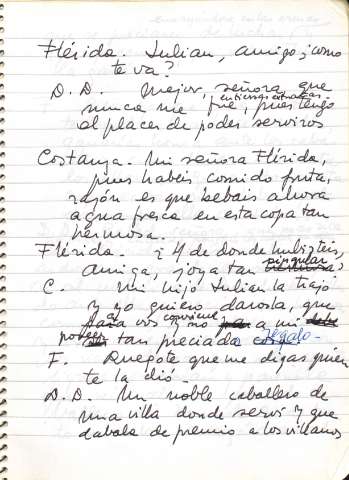 Flérida. Julian, amigo, ¿como
te va?
D. D. Mejor, señora, que
en tierras extrañas
nunca me fué, pues tengo
al placer de poder serviros
Costanza. Mi señora Flérida,
pues habéis comido fruta,
razón es que bebais ahora
agua fresca en esta copa tan
hermosa.
Flérida. ¿Y de donde hubisteis,
singular
amiga, joya tan hermosa?
C. Mi hijo Julian la trajo
y yo quiero darosla, que
para a vos conviene y no para a mi
poseer tan preciada cosa regalo.
F. Ruegote que me digas quien
te la dió.
D. D. Un noble caballero de
una villa donde serví y que
dabala de premio a los villanos